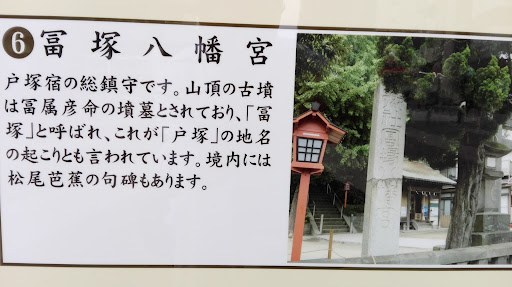 6 冨塚八幡宮
戸塚宿の総鎮守です。山頂の古墳
は冨属彦命の墳墓とされており、「冨
塚」と呼ばれ、これが「戸塚」の地名
の起こりとも言われています。境内には
松尾芭蕉の句碑もあります。